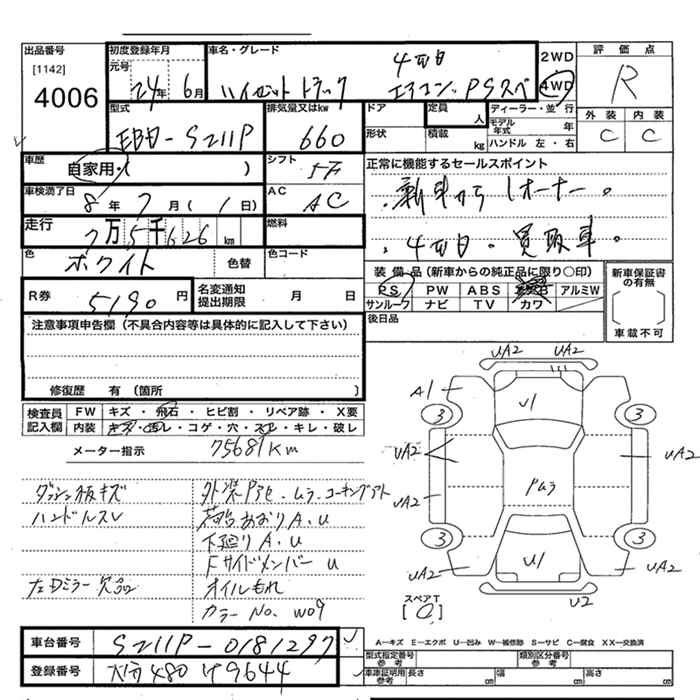 出品番号 初度登録年月 車名・グレード 4WD 2WD 評価点
[1142] 元号
4006 24年 6月 ハイゼットトラック エアコン、PSスペ 4WD R
型式 排気量又はkw ドア 定員 ディーラー・並行 外装 内装
EBD-S211P 660 形状 積載 人 kg モデル年式 年 ハンドル 左・右 C C
車歴 自家用・( ) シフト 5F 正常に機能するセールスポイント
車検満了日 8年 7月 (1日) AC AC ・新車から1オーナー。
走行 7万5千626km 燃料 ・4WD・買取車。
色 ホワイト 色替 色コード
装備品(新車からの純正品に限り○印) 新車保証書の有無
R券 5190円 名変通知提出期限 月 日 PS PW ABS アルミW
サンルーフ ナビ TV カワ 車載不可
注意事項申告欄(不具合内容等は具体的に記入して下さい) 後日品
修復歴 有(箇所 )
検査員記入欄 FW キズ・飛石・ヒビ割・リペア跡・X要
内装 キズ・汚レ・コゲ・穴・スレ・キレ・破レ
メーター指示 75681Km
ダッシュ板キズ 外装Pアセ・ムラ・コーキングアト
ハンドルスレ 荷台あおりA.U
下廻りA.U
FサイドメンバーU
左Dミラー欠品 オイルもれ
カラーNo. W09
UA2 UA2
A1 U1 UA2
3 3
UA2 UA2
UA2 Pムラ
3 3
UA2 U1 UA2
U2
スペアT
[0]
車台番号 S211P-0181297
A-キズ E-エクボ U-凹み W-補修跡 S-サビ C-腐食 XX-交換済
型式指定番号 参考 類別区分番号 参考
登録番号 大分480け9644 車庫証明用 参考 長さ cm 幅 cm 高さ cm